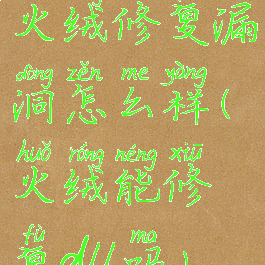 火绒修复漏
dòng zěn me yàng
洞怎么样(
huǒ róng néng xiū
火绒能修
fù ma
复dll吗)